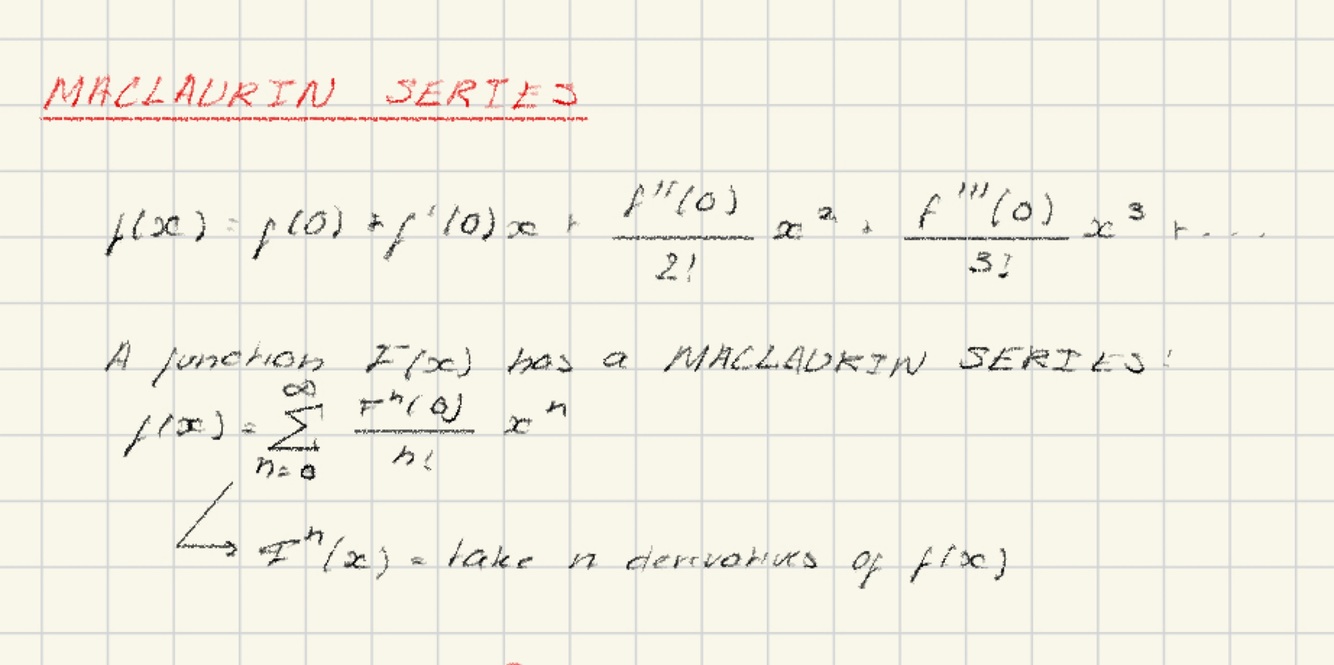 MACLAURIN SERIES
f(x) = f(0) + f'(0)x + f''(0)/2! x² + f'''(0)/3! x³ + ...
A function F(x) has a MACLAURIN SERIES:
f(x) = ∞∑n=0 Fⁿ(0)/n! xⁿ
↳ Fⁿ(x) = take n derivatives of f(x)